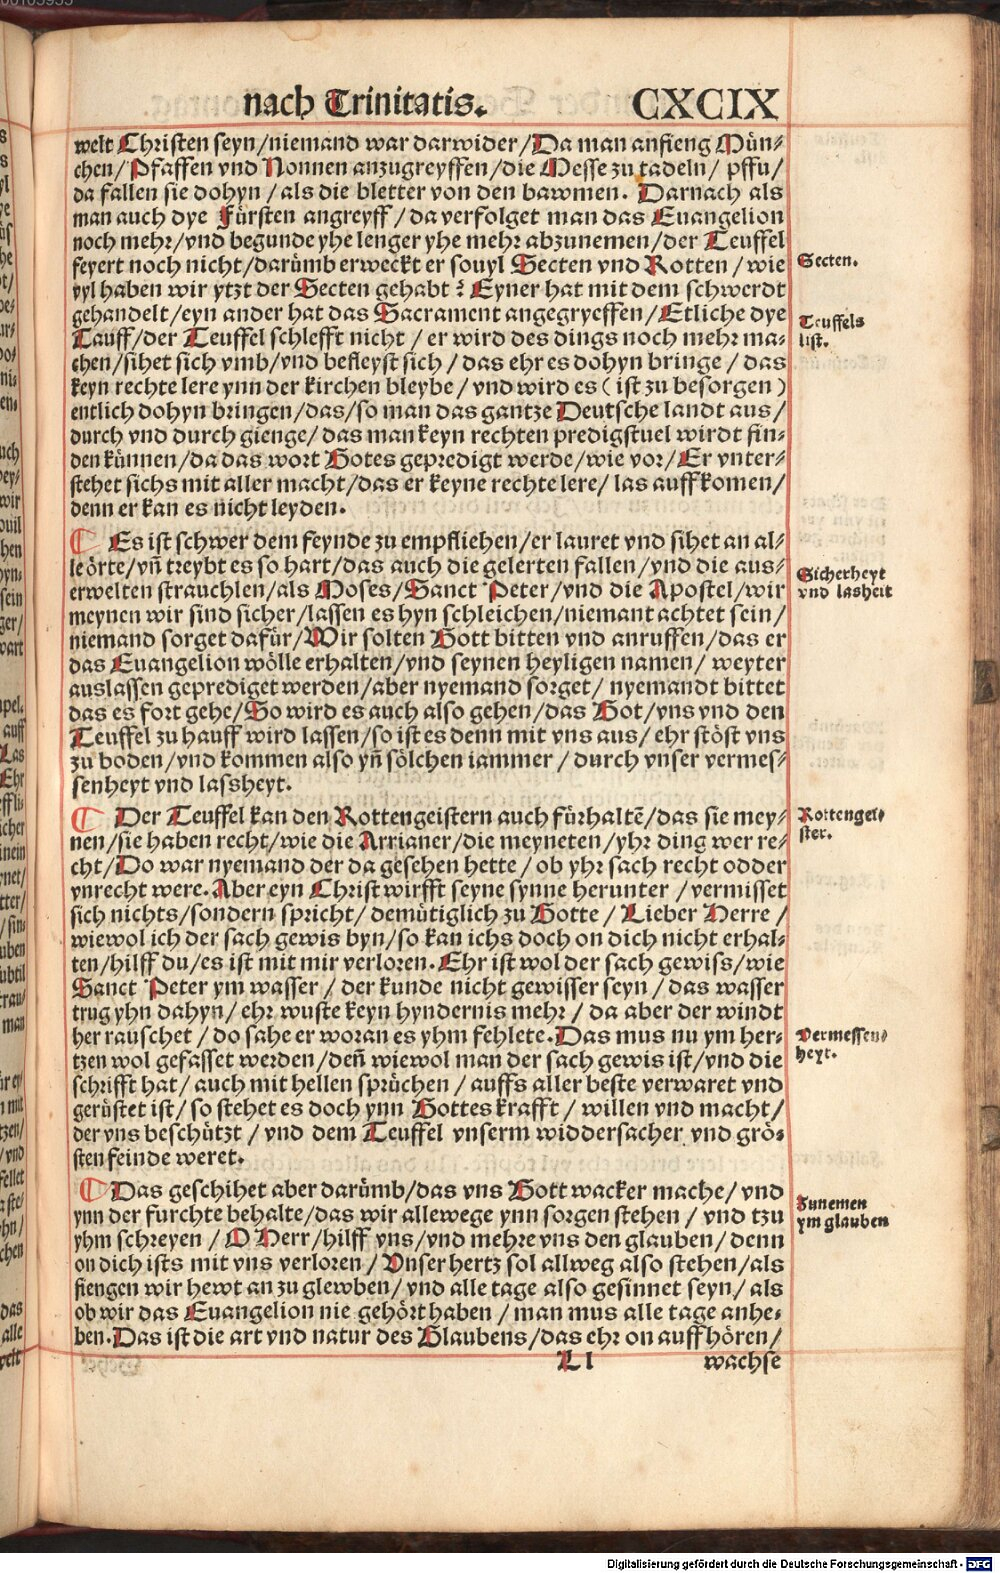 nach Trinitatis. CXCIX
welt Christen seyn/niemand war darwider/Da man anfieng Mün-
chen/Pfaffen vnd Nonnen anzugreyffen/die Messe zu tadeln/ pffu/
da fallen sie dohyn/als die bletter von den bawmen. Darnach als
man auch dye Fürsten angreyff/da verfolget man das Euangelion
noch mehr/vnd begunde yhe lenger yhe mehr abzunemen/der Teuffel
feyert noch nicht/darümb erweckt er souyl Secten vnd Rotten/wie
vyl haben wir ytzt der Secten gehabt? Eyner hat mit dem schwerdt
gehandelt/eyn ander hat das Sacrament angegryeffen/Etliche dye
Tauff/der Teuffel schlefft nicht/er wird des dings noch mehr ma-
chen/sihet sich vmb/vnd befleyst sich/das ehr es dohyn bringe/das
keyn rechte lere ynn der kirchen bleybe/vnd wird es (ist zu besorgen)
entlich dohyn bringen/das/so man das gantze Deutsche landt aus/
durch vnd durch gienge/das man keyn rechten predigstuel wirdt fin-
den künnen/da das wort Gotes gepredigt werde/wie vor/Er vnter-
stehet sichs mit aller macht/das er keyne rechte lere/las auffkomen/
denn er kan es nicht leyden.
Secten.
Teuffels
list.
¶ Es ist schwer dem feynde zu empfliehen/er lauret vnd sihet an al-
le örte/vñ treybt es so hart/das auch die gelerten fallen/vnd die aus-
erwelten strauchlen/als Moses/Sanct Peter/vnd die Apostel/wir
meynen wir sind sicher/lassen es hyn schleichen/niemant achtet sein/
niemand sorget dafür/Wir solten Gott bitten vnd anruffen/das er
das Euangelion wölle erhalten/vnd seynen heyligen namen/weyter
auslassen geprediget werden/aber nyemand sorget/nyemandt bittet
das es fort gehe/So wird es auch also gehen/das Got/vns vnd den
Teuffel zu hauff wird lassen/so ist es denn mit vns aus/ehr stöst vns
zu boden/vnd kommen also yñ sölchen iammer/durch vnser vermes-
senheyt vnd lassheyt.
Sicherheyt
vnd lasheit
¶ Der Teuffel kan den Rottengeistern auch fürhaltẽ/das sie mey-
nen/sie haben recht/wie die Arrianer/die meyneten/yhr ding wer re-
cht/Do war nyemand der da gesehen hette/ob yhr sach recht odder
vnrecht were. Aber eyn Christ wirfft seyne synne herunter/vermisset
sich nichts/sondern spricht/demütiglich zu Gotte/Lieber Herre/
wiewol ich der sach gewis byn/so kan ichs doch on dich nicht erhal-
ten/hilff du/es ist mit mir verloren. Ehr ist wol der sach gewiss/wie
Sanct Peter ym wasser/der kunde nicht gewisser seyn/das wasser
trug yhn dahyn/ehr wuste keyn hyndernis mehr/da aber der windt
her rauschet/do sahe er woran es yhm fehlete. Das mus nu ym her-
tzen wol gefasset werden/deñ wiewol man der sach gewis ist/vnd die
schrifft hat/auch mit hellen sprüchen/auffs aller beste verwaret vnd
gerüstet ist/so stehet es doch ynn Gottes krafft/willen vnd macht/
der vns beschützt/vnd dem Teuffel vnserm widdersacher vnd grö-
sten feinde weret.
Rottengei-
ster.
Vermessen-
heyt.
¶ Das geschihet aber darümb/das vns Gott wacker mache/vnd
ynn der furchte behalte/das wir allewege ynn sorgen stehen/vnd tzu
yhm schreyen/O Herr/hilff vns/vnd mehre vns den glauben/denn
on dich ists mit vns verloren/Vnser hertz sol allweg also stehen/als
fiengen wir hewt an zu glewben/vnd alle tage also gesinnet seyn/als
ob wir das Euangelion nie gehört haben/man mus alle tage anhe-
ben. Das ist die art vnd natur des Glaubens/das ehr on auffhören/
Zunemen
ym glauben
Ll wachse
Digitalisierung gefördert durch die Deutsche Forschungsgemeinschaft - DFG